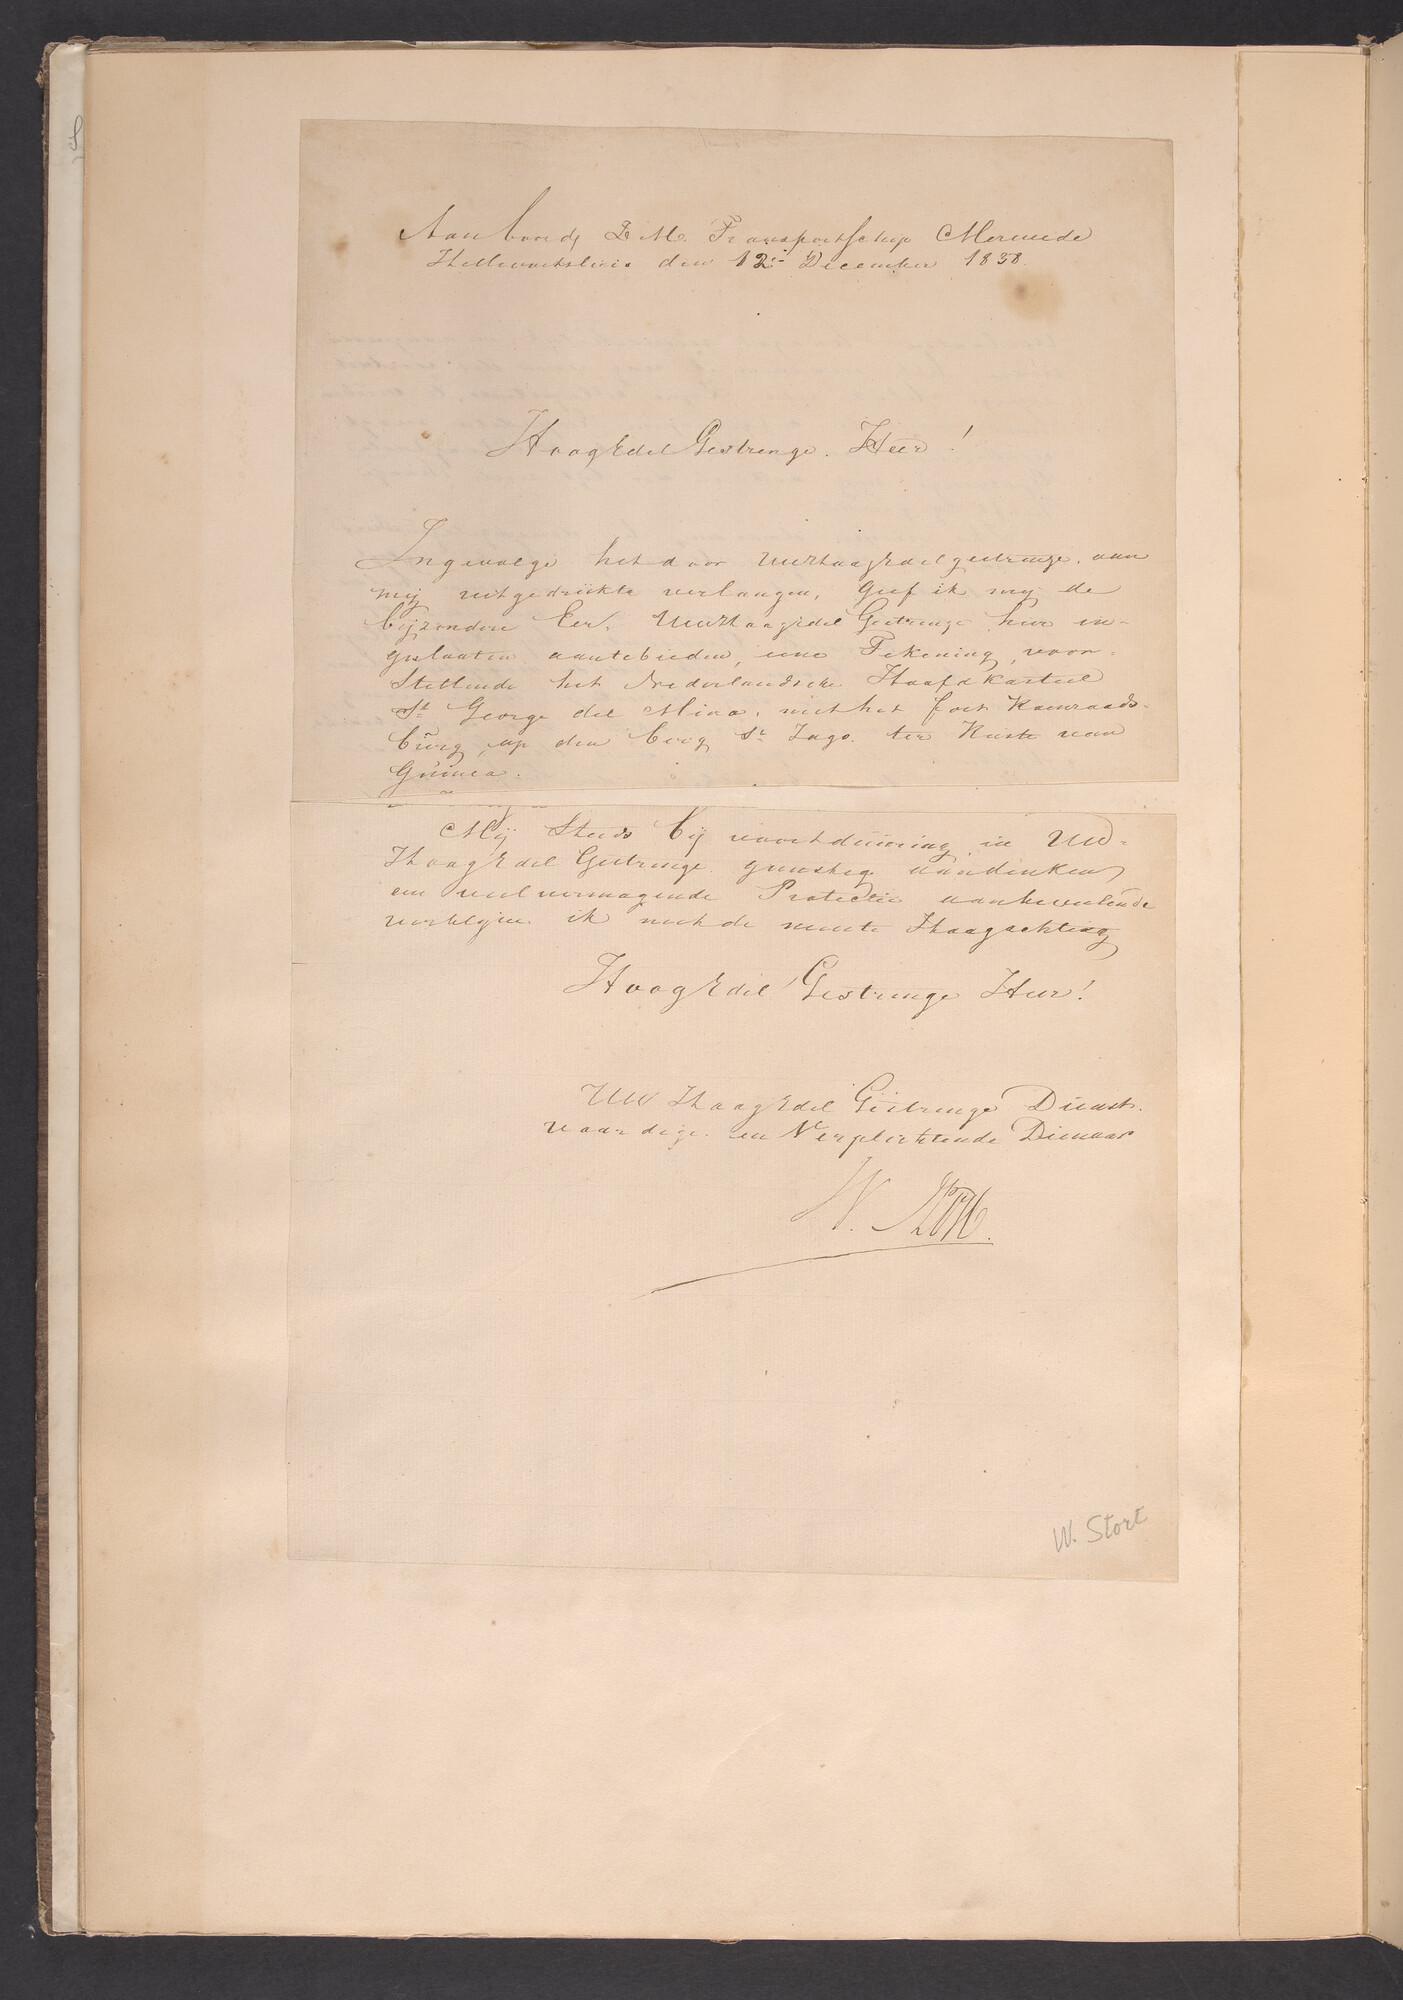 Aan boord Z M. Transportschip Merwede
Hellevoetsluis den 12e December 1838.
HoogEdel Gestrenge. Heer!
Ingevolge het door UwHoogEdelgestrenge. aan
mij uitgedrükte verlangen, geef ik mij de
bijzondere Eer, UwHoogEdel Gestrenge hier in-
geslooten aantebieden, eene Tekening, voor-
Stellende het Nederlandsche Hoofdkasteel
St. George del Mina. met het fort Koenraads-
bürg op den berg St. Jago. ter Kuste van
Guinea.
Mij Steeds bij voortduüring in UW-
HoogEdel Gestrenge gunstig aandenken
en veelvermogende Protectie aanbevelende
verblijve ik met de meeste Hoogachting
HoogEdel Gestrenge Heer!
UW HoogEdel Gestrenge Dienst-
vaardige. en Verplichtende Dienaar
W. Stort.
W. Stort